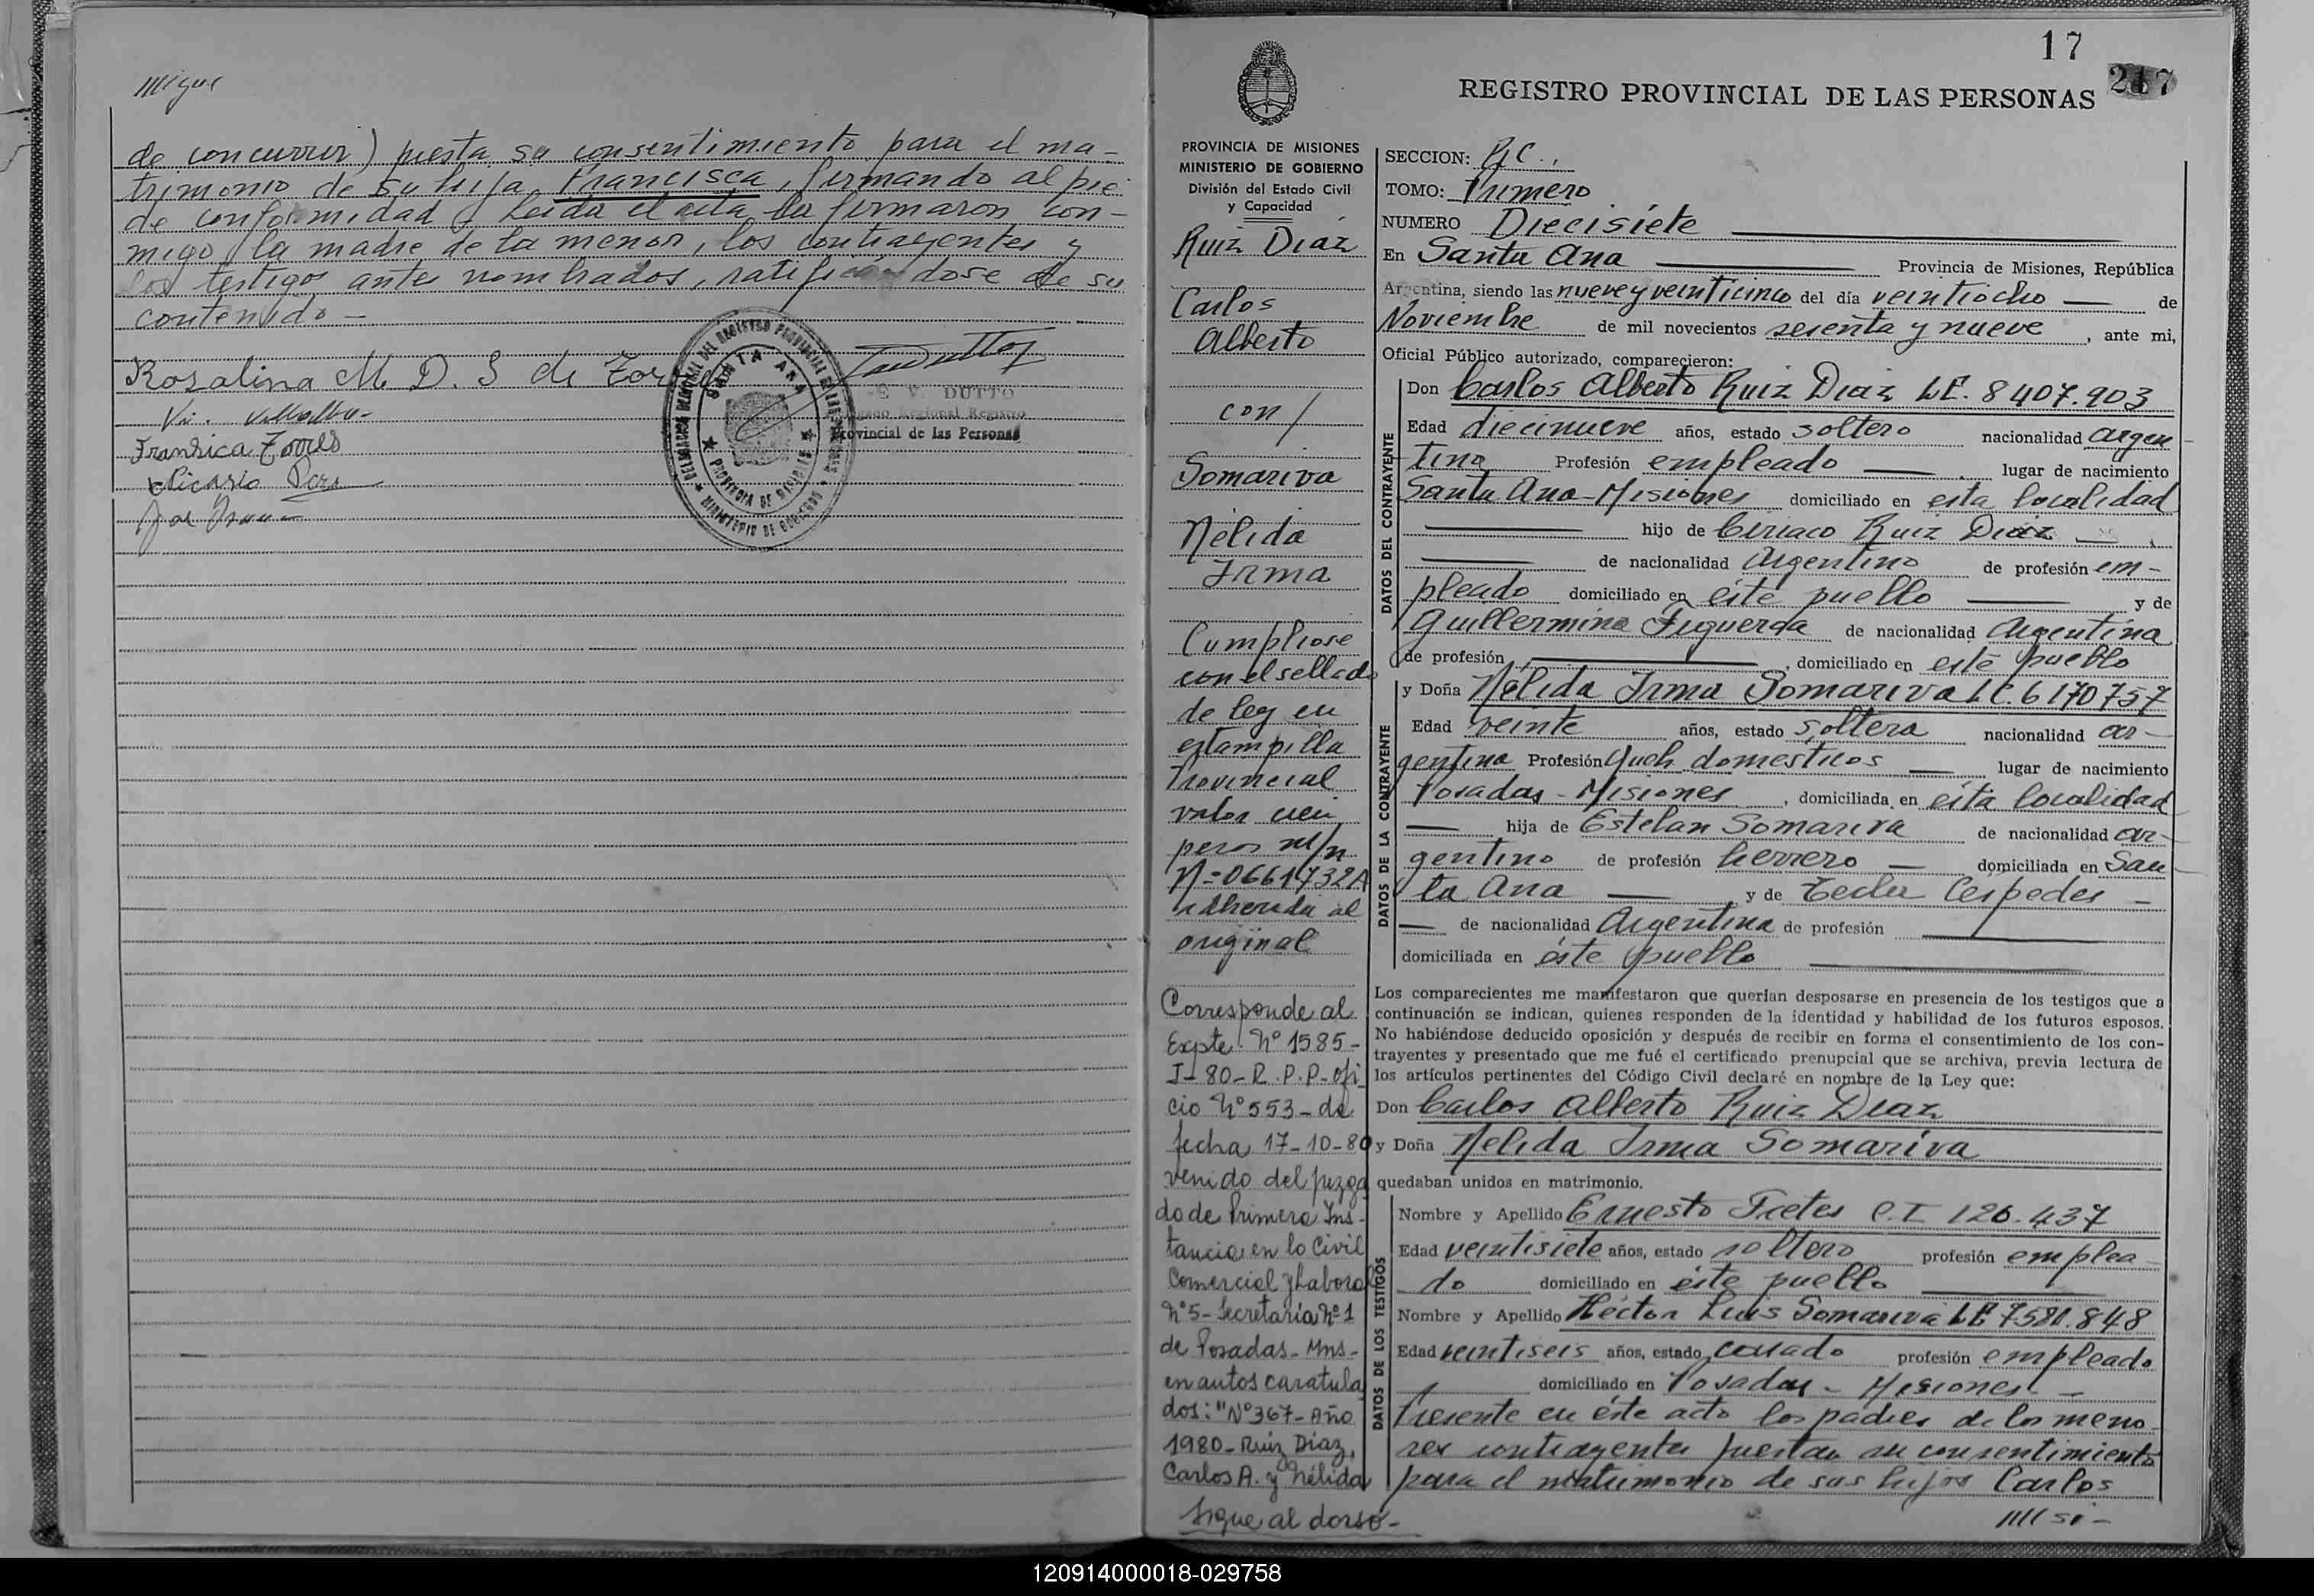 de concurrir) presta su consentimiento para el ma-
trimonio de su hija Francisca, firmando al pie
de conformidad. Leida el acta la firmaron con-
migo, la madre de la menor, los contrayentes y
los testigos antes nombrados, ratificandose de su
contenido -
Rosalina M D. S de
Francisca Torres
DELEGACION REGIONAL DEL REGISTRO PROVINCIAL DE LAS PERSONAS
SANTA ANA
PROVINCIA DE MISIONES
MINISTERIO DE GOBIERNO
V. DUTTO
Regional Registro
Provincial de las Personas
17
217
REGISTRO PROVINCIAL DE LAS PERSONAS
PROVINCIA DE MISIONES
MINISTERIO DE GOBIERNO
División del Estado Civil
y Capacidad
Ruiz Diaz
Carlos
Alberto
con/
Somariva
Nélida
Irma
Cumpliose
con el sellado
de ley en
estampilla
Provincial
valor cien
pesos m/n
Nº=0661732A
adherida al
original
Corresponde al
Expte. Nº 1585-
I-80-R.P.P-ofi
cio Nº 553-de
fecha 17-10-80
venido del juzga
do de Primera Ins-
tancia en lo Civil
Comercial y Laboral
Nº5-Secretaría Nº1
de Posadas-Mns-
en autos caratula
dos: "Nº367-Año
1980-Ruiz Diaz,
Carlos A. y Nélida
Sigue al dorso-
SECCION:
TOMO: Primero
NUMERO Diecisiete
En Santa Ana Provincia de Misiones, República
Argentina, siendo las nueve y veinticinco del día veintiocho de
Noviembre de mil novecientos sesenta y nueve, ante mi,
Oficial Público autorizado, comparecieron:
DATOS DEL CONTRAYENTE
Don Carlos Alberto Ruiz Diaz LE. 8407.903
Edad diecinueve años, estado soltero nacionalidad argen-
tina Profesión empleado lugar de nacimiento
Santa Ana-Misiones domiciliado en esta localidad
hijo de Ciriaco Ruiz Diaz
de nacionalidad Argentino de profesión em-
pleado domiciliado en éste pueblo y de
Guillermina Figueroa de nacionalidad Argentina
de profesión, domiciliado en este pueblo
DATOS DE LA CONTRAYENTE
y Doña Nélida Irma Somariva LC. 6170757
Edad veinte años, estado soltera nacionalidad ar-
gentina Profesión Queh. domesticos lugar de nacimiento
Posadas-Misiones, domiciliada en ésta localidad
hija de Estelan Somariva de nacionalidad ar-
gentino de profesión herrero domiciliada en San
ta Ana y de Tecla Cespedes -
de nacionalidad Argentina de profesión
domiciliada en éste pueblo
Los comparecientes me manifestaron que querían desposarse en presencia de los testigos que a
continuación se indican, quienes responden de la identidad y habilidad de los futuros esposos.
No habiéndose deducido oposición y después de recibir en forma el consentimiento de los con-
trayentes y presentado que me fué el certificado prenupcial que se archiva, previa lectura de
los artículos pertinentes del Código Civil declaré en nombre de la Ley que:
Don Carlos Alberto Ruiz Diaz
y Doña Nelida Irma Somariva
quedaban unidos en matrimonio.
DATOS DE LOS TESTIGOS
Nombre y Apellido Ernesto C.I 126.437
Edad veintisiete años, estado soltero profesión emplea-
do domiciliado en éste pueblo
Nombre y Apellido Héctor Luis Somariva LE 7581.848
Edad veintiseis años, estado casado profesión empleado
domiciliado en Posadas - Misiones -
Presente en éste acto los padres de los meno
res contrayentes prestan su consentimiento
para el matrimonio de sus hijos Carlos
120914000018-029758